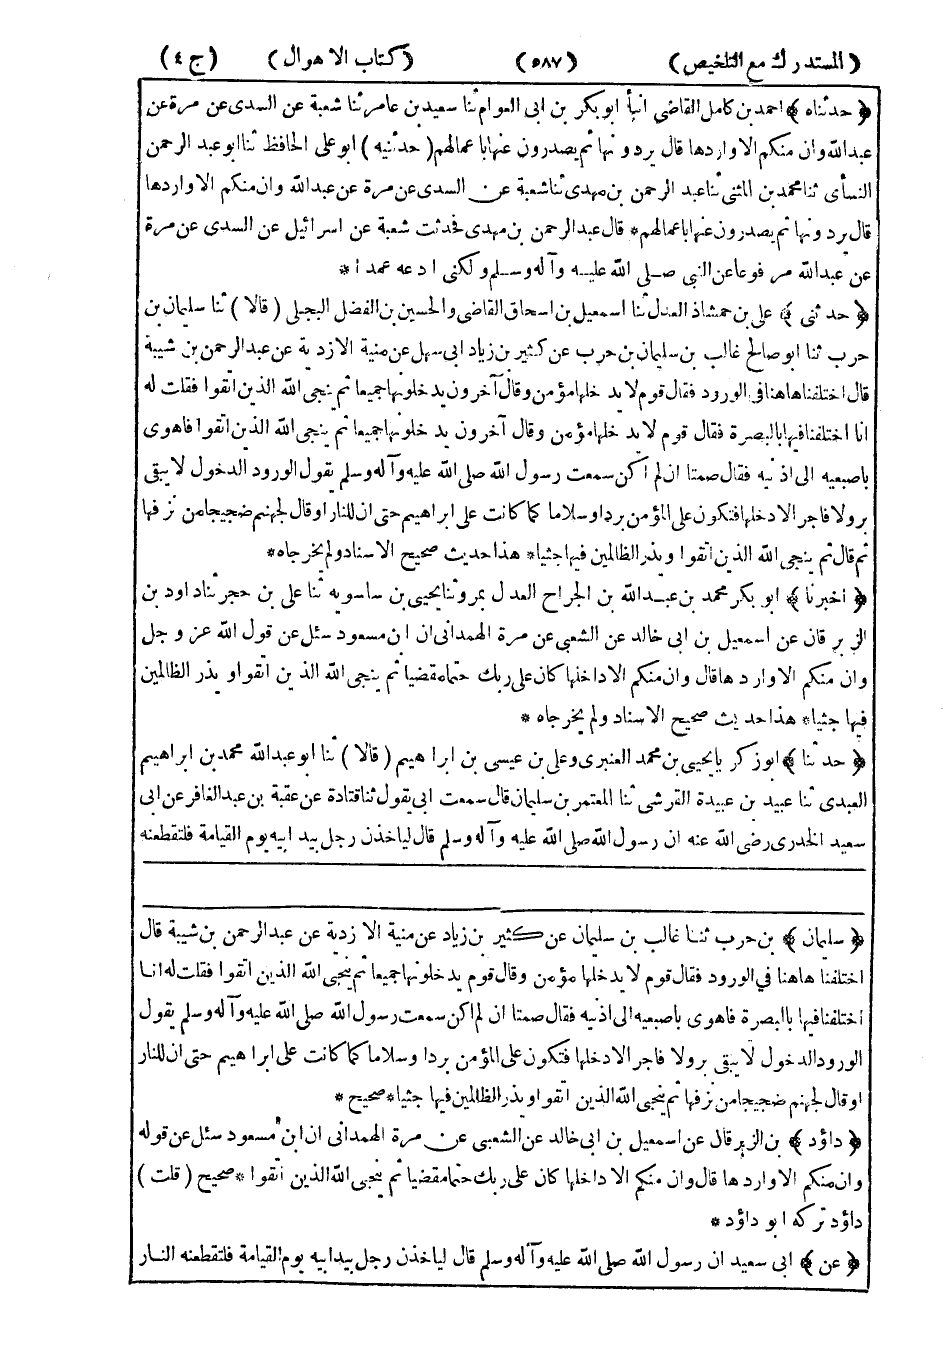 (المستدرك مع التلخيص) (٥٨٧) (كتاب الاهوال) (ج ٤)
﴿ حدثناه ﴾ احمد بن كامل القاضى انبأ ابو بكر بن ابى العوام ثنا سعيد بن عامر ثنا شعبة عن السدى عن مرة عن
عبدالله وان منكم الا واردها قال يردونها ثم يصدرون عنها باعمالهم (حدثنيه) ابو على الحافظ ثنا ابو عبد الرحمن
النسأى ثنا محمد بن المثنى ثنا عبد الرحمن بن مهدى ثنا شعبة عن السدى عن مرة عن عبدالله وان منكم الا واردها
قال يردونها ثم يصدرون عنها باعمالهم * قال عبد الرحمن بن مهدى فحدثت شعبة عن اسرائيل عن السدى عن مرة
عن عبدالله مرفوعا عن النبى صلى الله عليه وآله وسلم ولكنى ادعه عمدا *
﴿ حدثنى ﴾ على بن حمشاذ العدل ثنا اسمعيل بن اسحاق القاضى والحسين بن الفضل البجلى (قالا) ثنا سليمان بن
حرب ثنا ابو صالح غالب بن سليمان بن حرب عن كثير بن زياد ابى سهل عن منية الازدية عن عبد الرحمن بن شيبة
قال اختلفنا هاهنا فى الورود فقال قوم لا يدخلها مؤمن وقال آخرون يدخلونها جميعا ثم ينجى الله الذين اتقوا فقلت له
انا اختلفنا فيها بالبصرة فقال قوم لا يدخلها مؤمن وقال آخرون يدخلونها جميعا ثم ينجى الله الذين اتقوا فاهوى
باصبعيه الى اذنيه فقال صمتا ان لم اكن سمعت رسول الله صلى الله عليه وآله وسلم يقول الورود الدخول لا يبقى
بر ولا فاجر الا دخلها فتكون على المؤمن بردا وسلاما كما كانت على ابراهيم حتى ان للنار او قال لجهنم ضجيجا من نزفها
ثم قال ثم ينجى الله الذين اتقوا ويذر الظالمين فيها جثيا * هذا حديث صحيح الاسناد ولم يخرجاه *
﴿ اخبرنا ﴾ ابو بكر محمد بن عبدالله بن الجراح العدل بمرو ثنا يحيى بن ساسويه ثنا على بن حجر ثنا داود بن
الزبرقان عن اسمعيل بن ابى خالد عن الشعبى عن مرة الهمدانى ان ابن مسعود سئل عن قول الله عز وجل
وان منكم الا واردها قال وان منكم الا داخلها كان على ربك حتما مقضيا ثم ينجى الله الذين اتقوا ويذر الظالمين
فيها جثيا * هذا حديث صحيح الاسناد ولم يخرجاه *
﴿ حدثنا ﴾ ابو زكريا يحيى بن محمد العنبرى وعلى بن عيسى بن ابراهيم (قالا) ثنا ابو عبدالله محمد بن ابراهيم
العبدى ثنا عبيد بن عبيدة القرشى ثنا المعتمر بن سليمان قال سمعت ابى يقول ثنا قتادة عن عقبة بن عبد الغافر عن ابى
سعيد الخدرى رضى الله عنه ان رسول الله صلى الله عليه وآله وسلم قال لياخذن رجل بيد ابيه يوم القيامة فلتقطعنه
﴿ سليمان ﴾ بن حرب ثنا غالب بن سليمان عن كثير بن زياد عن منية الازدية عن عبد الرحمن بن شيبة قال
اختلفنا هاهنا في الورود فقال قوم لا يدخلها مؤمن وقال قوم يدخلونها جميعا ثم ينجى الله الذين اتقوا فقلت له انا
اختلفنا فيها بالبصرة فاهوى باصبعيه الى اذنيه فقال صمتا ان لم اكن سمعت رسول الله صلى الله عليه وآله وسلم يقول
الورود الدخول لا يبقى بر ولا فاجر الا دخلها فتكون على المؤمن بردا وسلاما كما كانت على ابراهيم حتى ان للنار
او قال لجهنم ضجيجا من نزفها ثم ينجى الله الذين اتقوا ويذر الظالمين فيها جثيا * صحيح *
﴿ داؤد ﴾ بن الزبرقال عن اسمعيل بن ابى خالد عن الشعبي عن مرة الهمدانى ان ابن مسعود سئل عن قوله
وان منكم الا واردها قال وان منكم الا داخلها كان على ربك حتما مقضيا ثم ينجى الله الذين اتقوا * صحيح (قلت)
داؤد تركه ابو داؤد *
﴿ عن ﴾ ابى سعيد ان رسول الله صلى الله عليه وآله وسلم قال لياخذن رجل بيد ابيه يوم القيامة فلتقطعنه النار